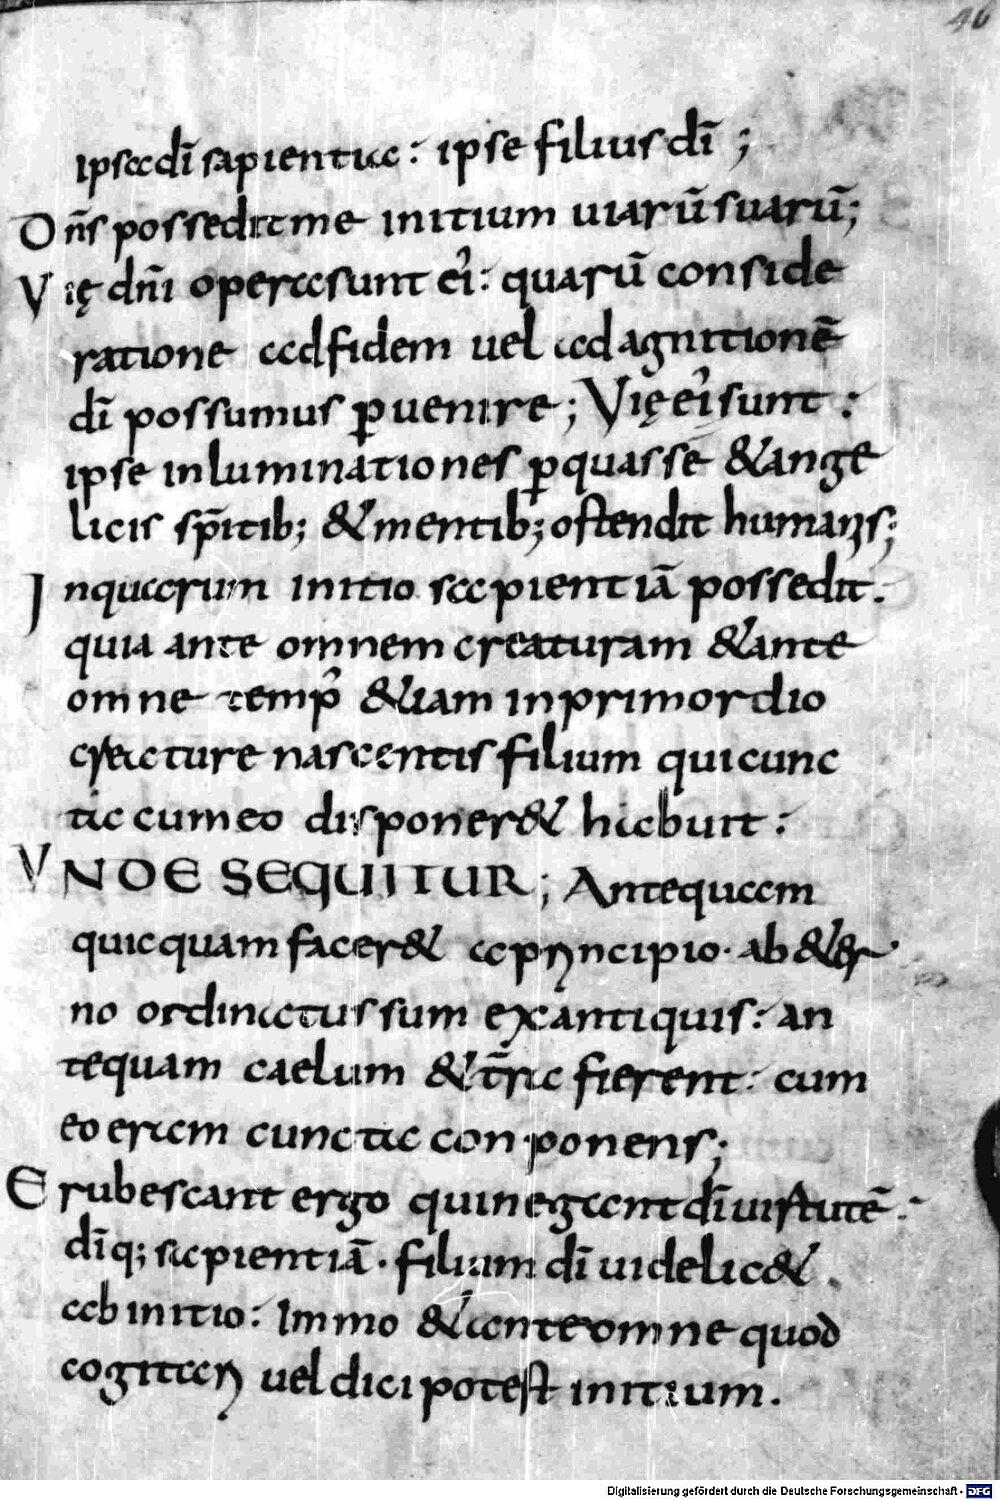 46
ipsa dī sapientia: ipse filius dī;
Dn̄s possedit me initium uiarū suarū;
Vię dn̄i opera sunt ei: quarū conside
ratione ad fidem uel ad agnitionē
dī possumus ꝑuenire; Vię ei sunt:
ipse inluminationes ꝑ quas se & ange
licis sp̄itib; & mentib; ostendit humanis;
In quarum initio sapientiā possedit:
quia ante omnem creaturam & ante
omne temp' &iam in primordio
creature nascentis filium qui cunc
ta cum eo disponer& habuit:
VNDE SEQUITUR; Antequam
quicquam facer& a principio· ab &er
no ordinatus sum ex antiquis: an
tequam caelum & t̄ra fierent: cum
eo eram cuncta conponens;
Erubescant ergo qui negant dī uirtutē:
dīq; sapientiā· filium dī uidelic&
ab initio: Immo & ante omne quod
cogitari uel dici potest initium.
Digitalisierung gefördert durch die Deutsche Forschungsgemeinschaft - DFG